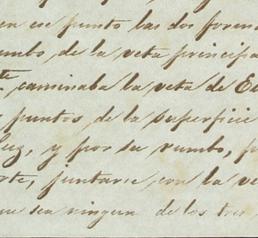 en ese punto las dos
rumbo de la veta principa
te caminaba la veta de
puntos de la superficie
luz, y por su rumbo, p
rte, juntarse con la ve
que sea ninguna de los tres